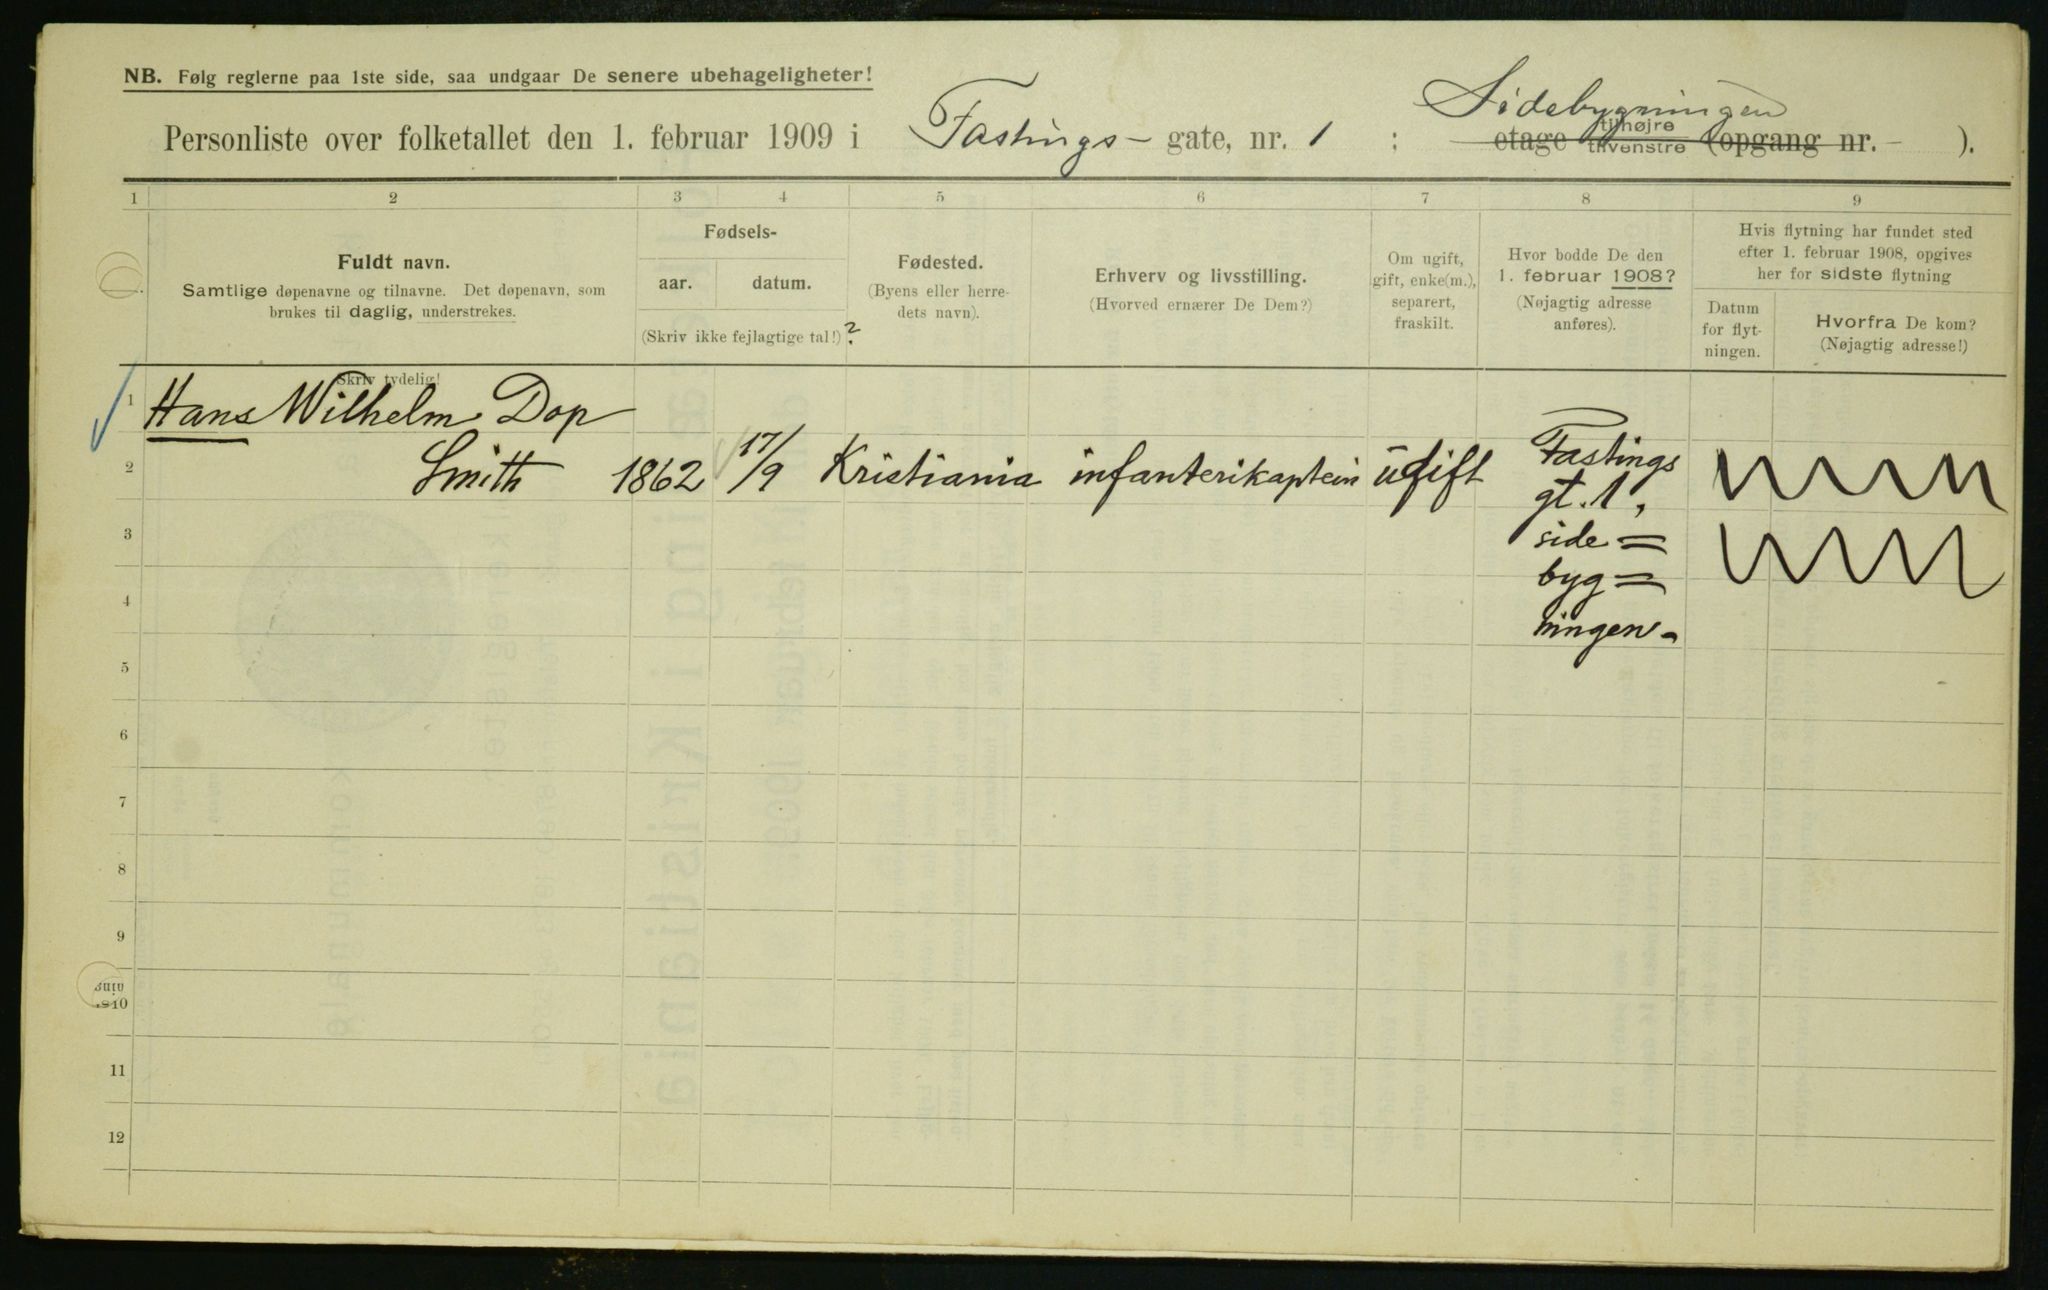 NB. Følg reglerne paa 1ste side, saa undgaar De senere ubehageligheter!
Sidebygningen
Personliste over folketallet den 1. februar 1909 i Fastings- gate, nr. 1 : etage tilhøjre tilvenstre (opgang nr. - ).
1 2 3 4 5 6 7 8 9
Fuldt navn.
Samtlige døpenavne og tilnavne. Det døpenavn, som
brukes til daglig, understrekes.
Fødsels-
aar. datum.
(Skriv ikke fejlagtige tal!)?
Fødested.
(Byens eller herre-
dets navn).
Erhverv og livsstilling.
(Hvorved ernærer De Dem?)
Om ugift,
gift, enke(m.),
separert,
fraskilt.
Hvor bodde De den
1. februar 1908?
(Nøjagtig adresse
anføres).
Hvis flytning har fundet sted
efter 1. februar 1908, opgives
her for sidste flytning
Datum
for flyt-
ningen.
Hvorfra De kom?
(Nøjagtig adresse!)
Skriv tydelig!
1 Hans Wilhelm Dop
2 Smith 1862 17/9 Kristiania infanterikaptein ugift Fastings
gt. 1,
3 side=
byg=
4 ningen-
5
6
7
8
9
10
11
12